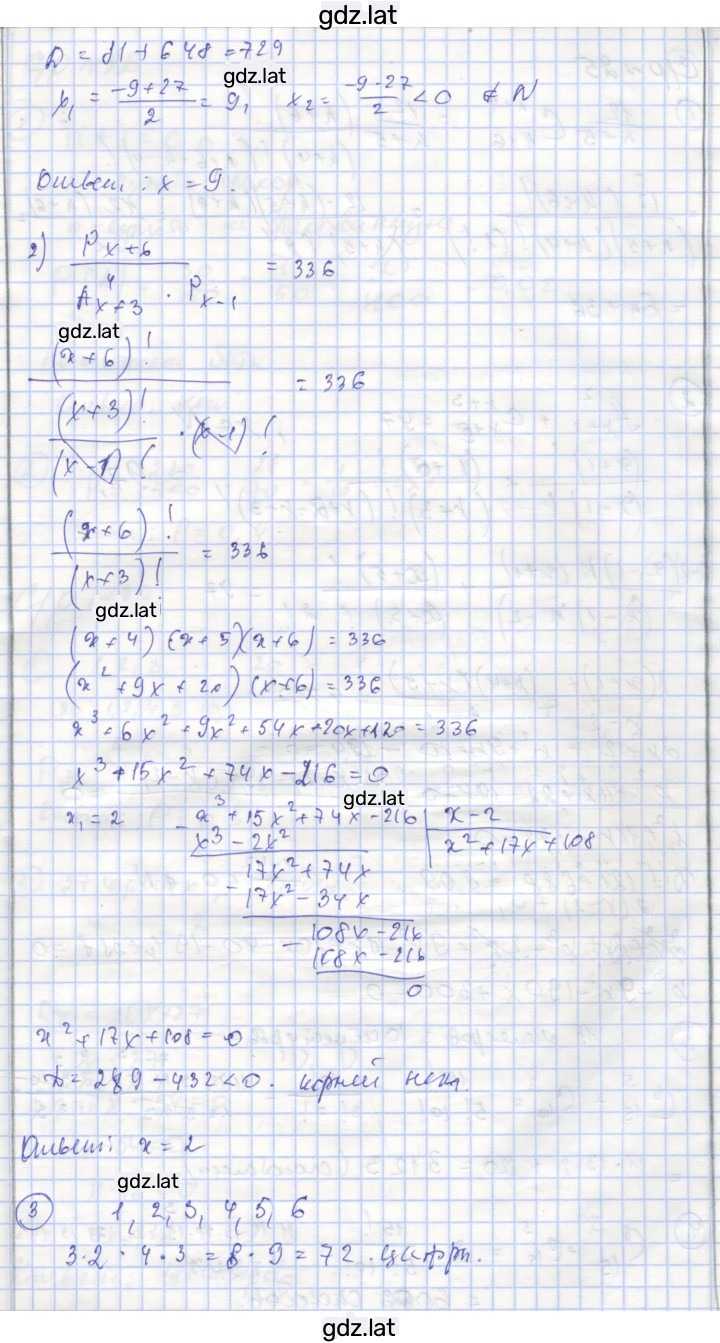 gdz.lat
D = 81 + 648 = 729
gdz.lat
x₁ = (-9+27)/2 = 9, x₂ = (-9-27)/2 < 0 ∉ N
Ответ: x = 9.
2) P_{x+6} / (A⁴_{x+3} · P_{x-1}) = 336
gdz.lat
(x+6)! / ((x+3)!/(x-1)! · (x-1)!) = 336
(x+6)! / (x+3)! = 336
gdz.lat
(x+4)(x+5)(x+6) = 336
(x²+9x+20)(x+6) = 336
x³+6x²+9x²+54x+20x+120 = 336
x³+15x²+74x-216 = 0
gdz.lat
x₁ = 2 - x³+15x²+74x-216 | x-2
x³-2x² | x²+17x+108
17x²+74x
- 17x²-34x
108x-216
- 108x-216
0
x²+17x+108 = 0
D = 289-432<0. корней нет.
Ответ: x = 2
gdz.lat
3 1, 2, 3, 4, 5, 6
3·2·4·3 = 8·9 = 72 цифр.
gdz.lat